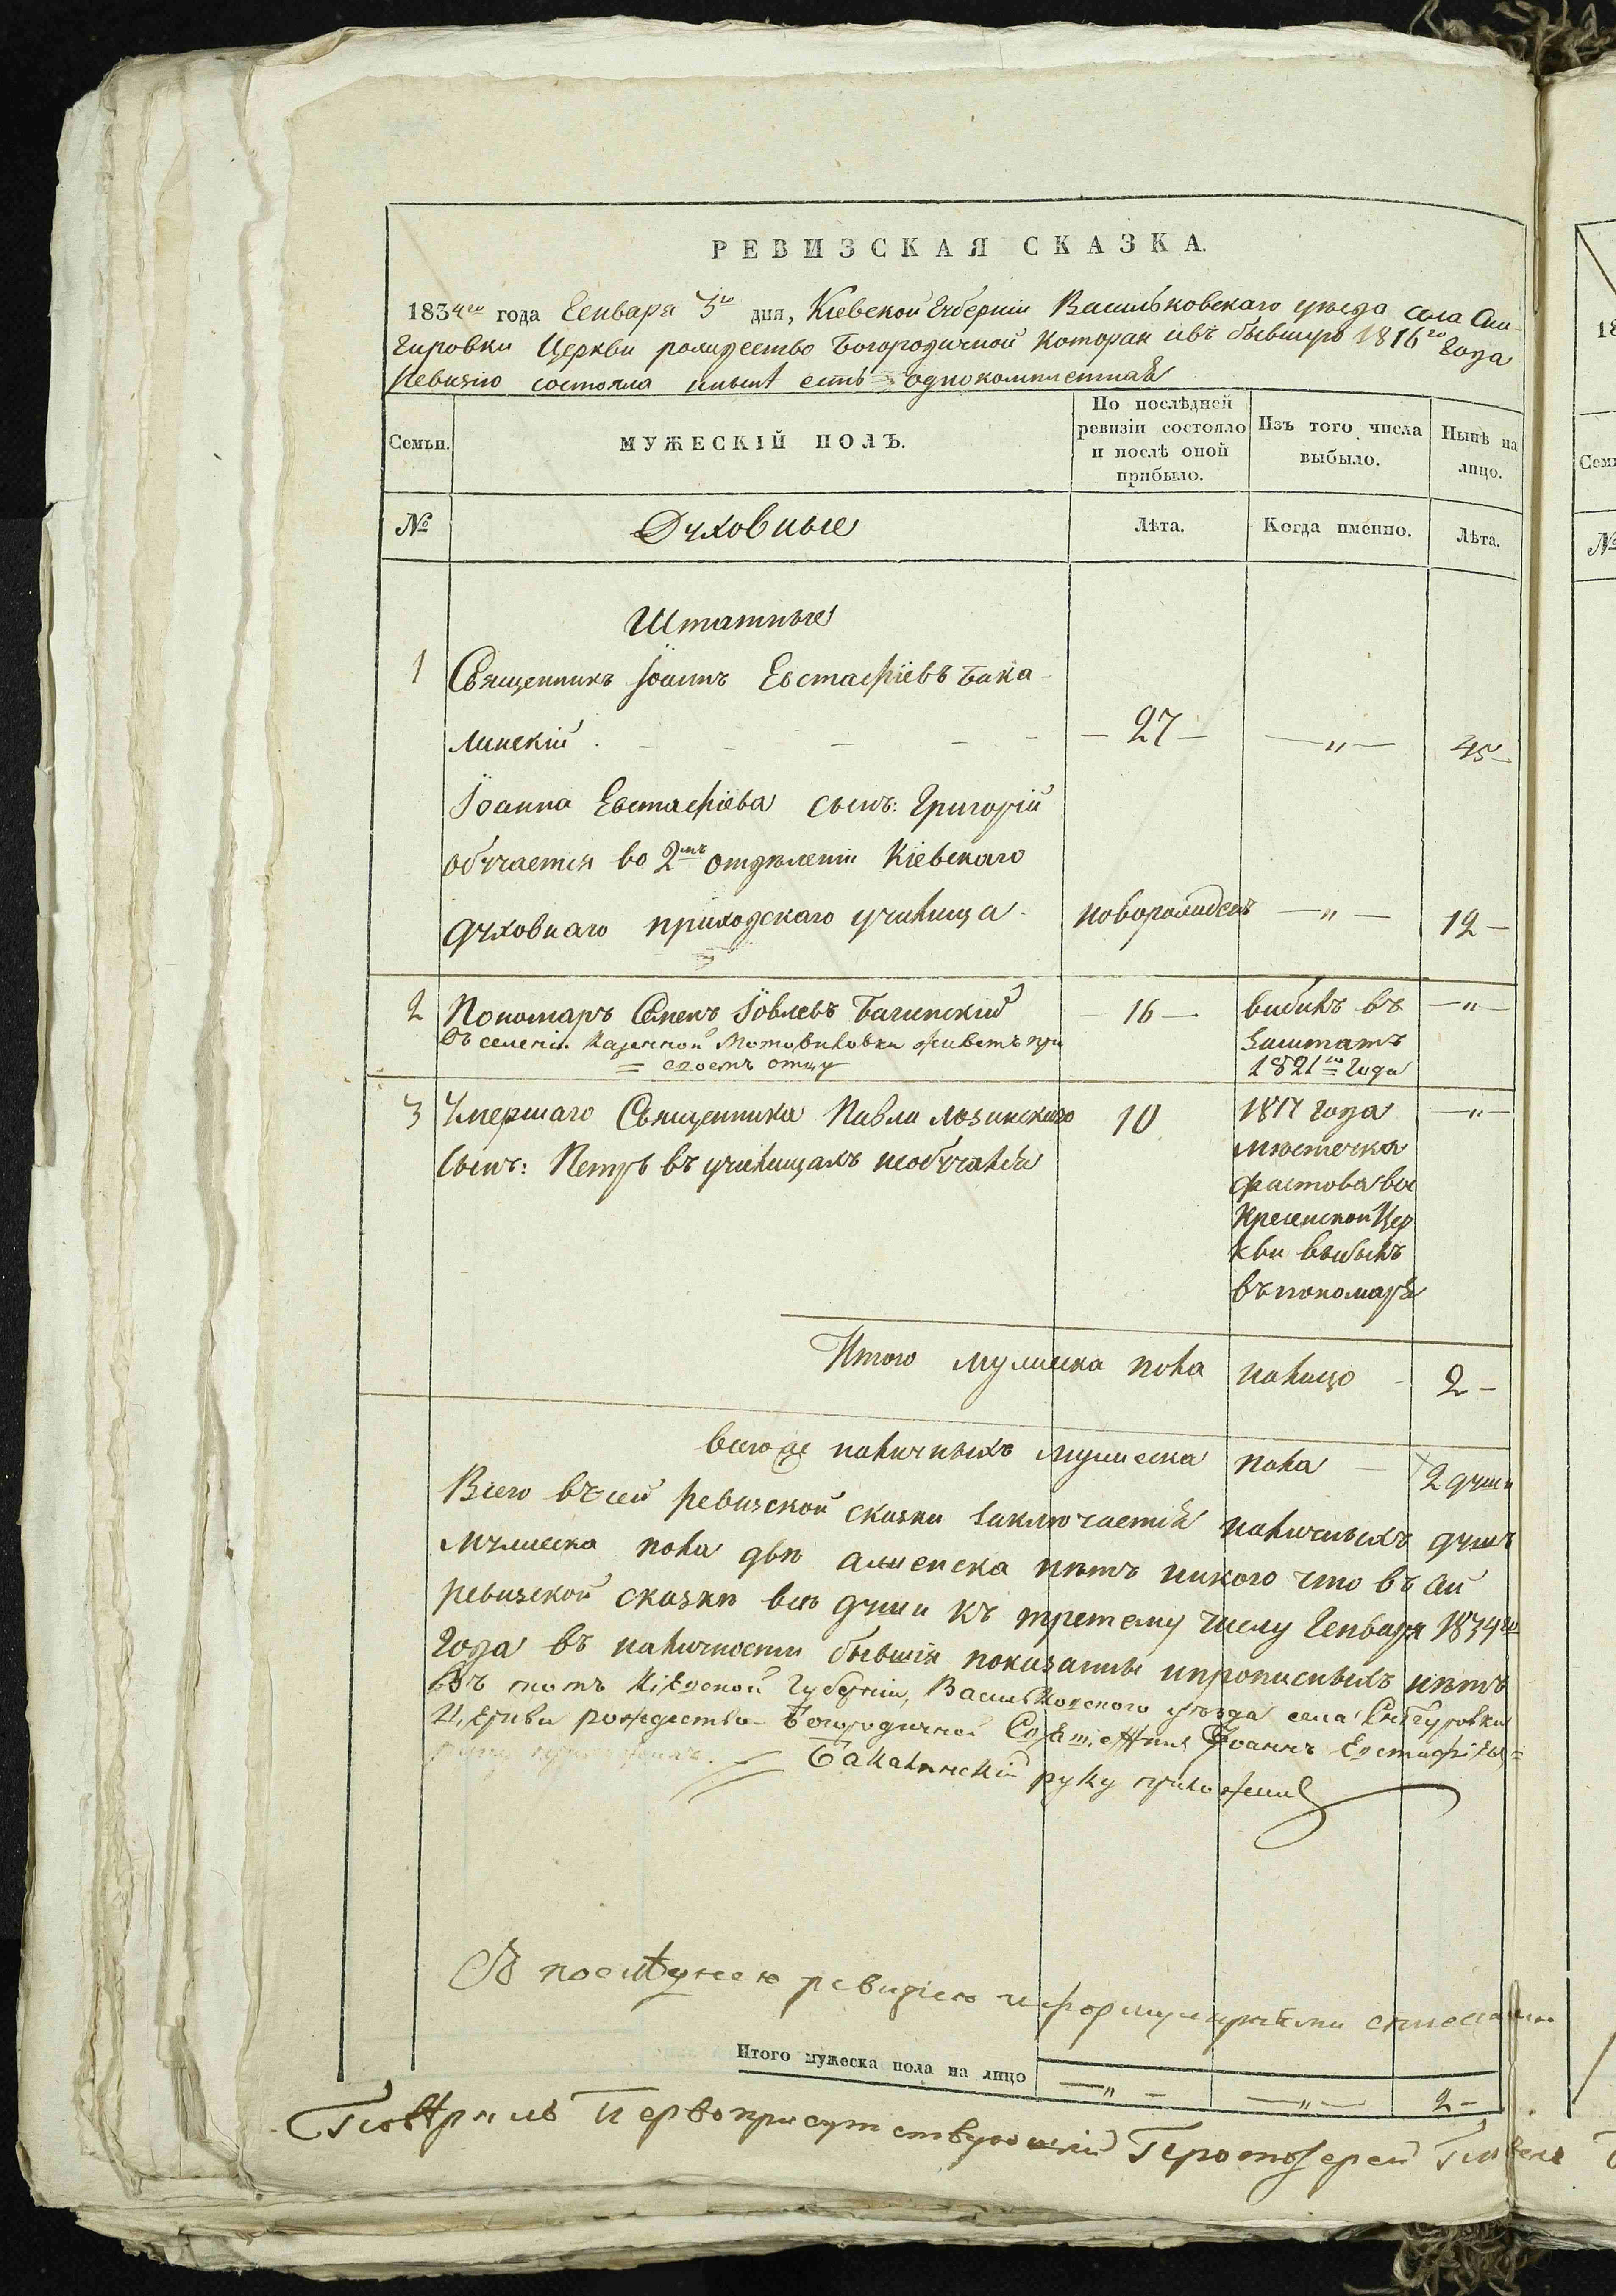 РЕВИЗСКАЯ СКАЗКА.
1834го года Генваря 3го дня, Кіевской Губерніи Васильковскаго уѣзда села Сни-
гировки Церкви рождество Богородичной которая ивъ бывшую 1816го года
Ревизію состояла инынѣ есть однокомплетная
Семьи.
МУЖЕСКІЙ ПОЛЪ.
По послѣдней ревизіи состояло и послѣ оной прибыло.
Изъ того числа выбыло.
Нынѣ на лицо.
№
Духовные
Лѣта.
Когда именно.
Лѣта.
Штатные
1 Священникъ Іоаннъ Евстафіевъ Бака-
линскій - 27 - — „ — 45 -
Іоанна Евстафіева сынъ: Григорій
обучается во 2мъ отдѣленіи Кіевскаго
духовнаго приходскаго училища. новорожденъ — „ — 12 -
2 Пономаръ Семенъ Іовлевъ Багинскій - 16 - вибилъ въ — „ —
Въ селеніи Казенной Мотовиловки живетъ при заштатъ
= своемъ отцу 1821го года
3 Умершаго Священника Павла Лозинскаго 10 1817 года — „ —
сынъ: Петръ въ училищахъ необучался мѣстечка
фастова вос
кресенской Цер
кви выбылъ
въ пономаря
Итого мужеска пола налицо - 2 -
всего же наличныхъ мужеска пола — 2 души
Всего въ сей ревизской сказки заключается наличныхъ душъ
мужеска пола двѣ аженска нѣтъ никого что въ сей
ревизской сказкѣ всѣ души къ третему числу Генваря 1834го
года въ наличности бывшія показанны ипрописныхъ нѣтъ
Въ томъ Кіевской Губерніи, Васильковского уѣзда села Снѣгуровки
Церкви рождество-Богородичной Священникъ Іоаннъ Евстафіевъ =
Бакалинскій руку приложилъ
Съ послѣднею ревизіею и формулярными списками
Итого мужеска пола на лицо — „ — — „ — 2 -
Повѣрялъ Первоприсутствующій Протоіерей Павелъ
18
Семь
№